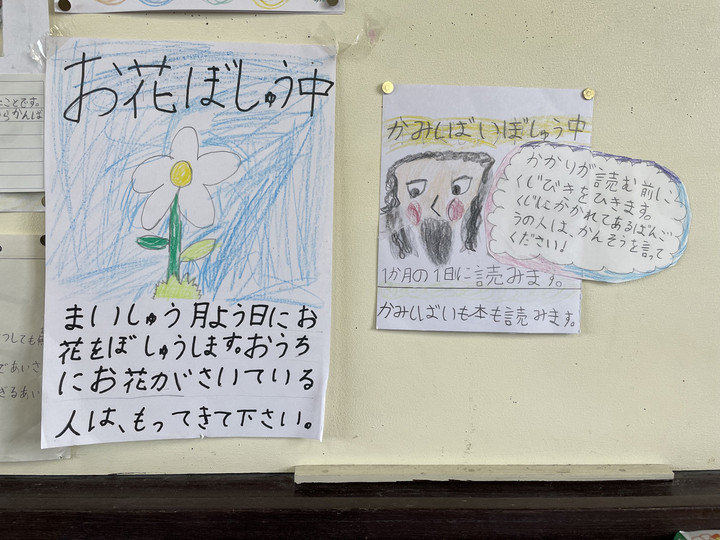 お花ぼしゅう中
まいしゅう月よう日にお
花をぼしゅうします。おうち
にお花がさいている
人は、もってきて下さい。
かみしばいぼしゅう中
1か月の1日に読みます。
かみしばいも本も読みます。
かかりが、読む前に
くじびきをひきます。
くじにかかれてあるばんご
うの人は、かんそうを言って
ください!
ことです。
らかんば
つしても
であいさ
きるあい